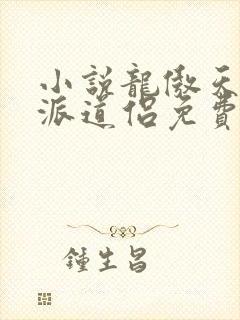 小說龍傲天
派道侶免費
鍾生昌